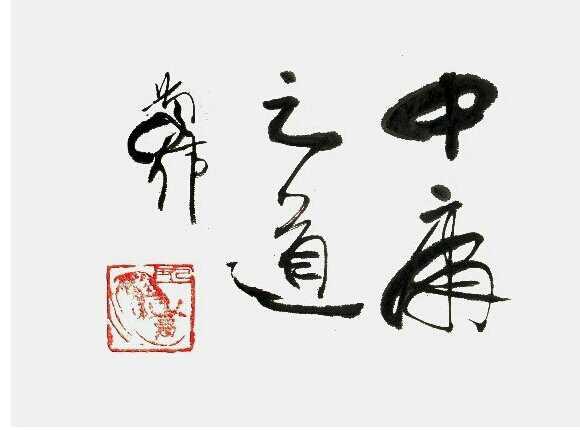 中庸
之道